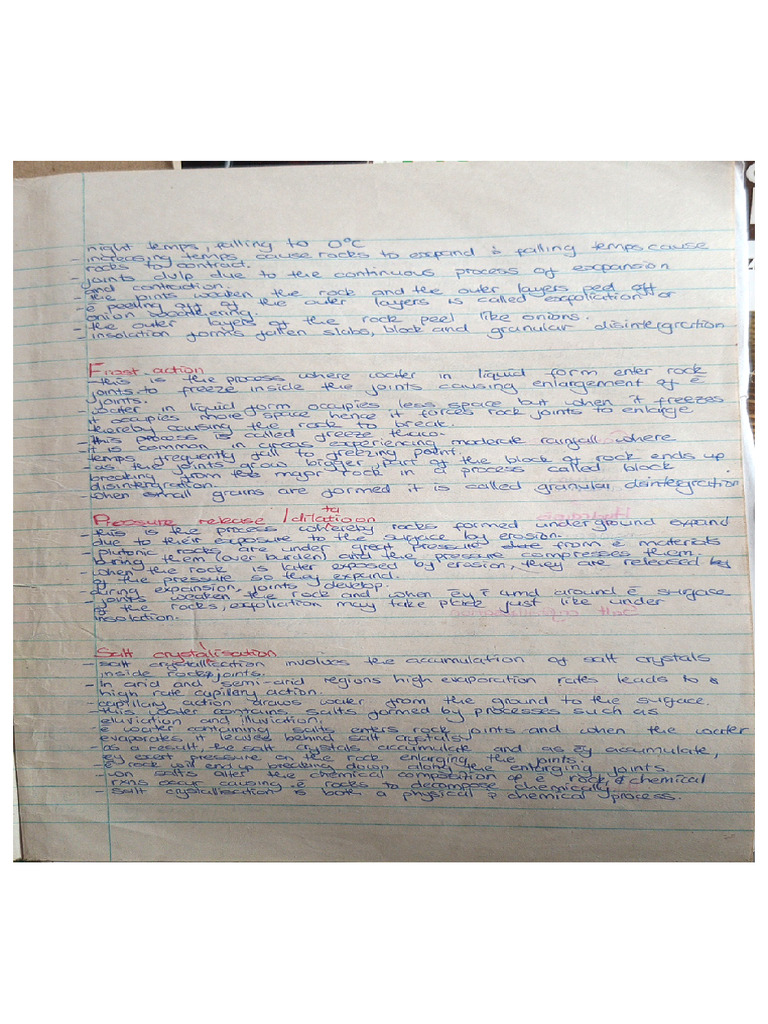 night temps, falling to 0°C
- increasing temps cause rocks to expand & falling temps cause
rocks to contract.
- joints dvlp due to the continuous process of expansion
and contraction.
- the joints weaken the rock and the outer layers peel off
- ē peeling off of the outer layers is called exfoliation or
onion weathering.
- the outer layers of the rock peel like onions.
- insolation forms fallen slabs, block and granular disintergration
Frost action
- this is the process where water in liquid form enter rock
joints to freeze inside the joints causing enlargement of ē
joints.
- water in liquid form occupies less space but when it freezes
it occupies more space hence it forces rock joints to enlarge
thereby causing the rock to break.
- this process is called freeze thaw.
- it is common in areas experiencing moderate rainfall where
temps frequently fall to freezing point.
- as the joints grow bigger, part of the block of rock ends up
breaking from the major rock in a process called block
disintergration.
- when small grains are formed it is called granular disintegration
ta
Pressure release / dilatioon
- this is the process whereby rocks formed underground expand
due to their exposure to the surface by erosion.
- plutonic rocks are under great pressure from ē materials
buring them (over burden) and the pressure compresses them.
- when the rock is later exposed by erosion, they are released by
of the pressure so they expand.
- during expansion, joints develop.
- joints weaken the rock and when ēy r̄ amd around ē surface
of the rocks, exfoliation may take place just like under
insolation.
Salt crystalisation
- salt crystallisation involves the accumulation of salt crystals
inside rock joints.
- In arid and semi-arid regions high evaporation rates leads to a
high rate capillary action.
- capillary action draws water from the ground to the surface.
- this water contains salts formed by processes such as
eluviation and illuviation.
- ē water containing salts enters rock joints and when the water
evaporates, it leaves behind salt crystals.
- as a result, the salt crystals accumulate and as ēy accumulate,
ēy exert pressure on the rock enlarging the joints.
- ē rock will end up breaking down along the enlarging joints.
- wn salts alter the chemical composition of ē rock, & chemical
rxns occur causing ē rocks to decompose chemically.
- Salt crystallisation is both a physical & chemical process.